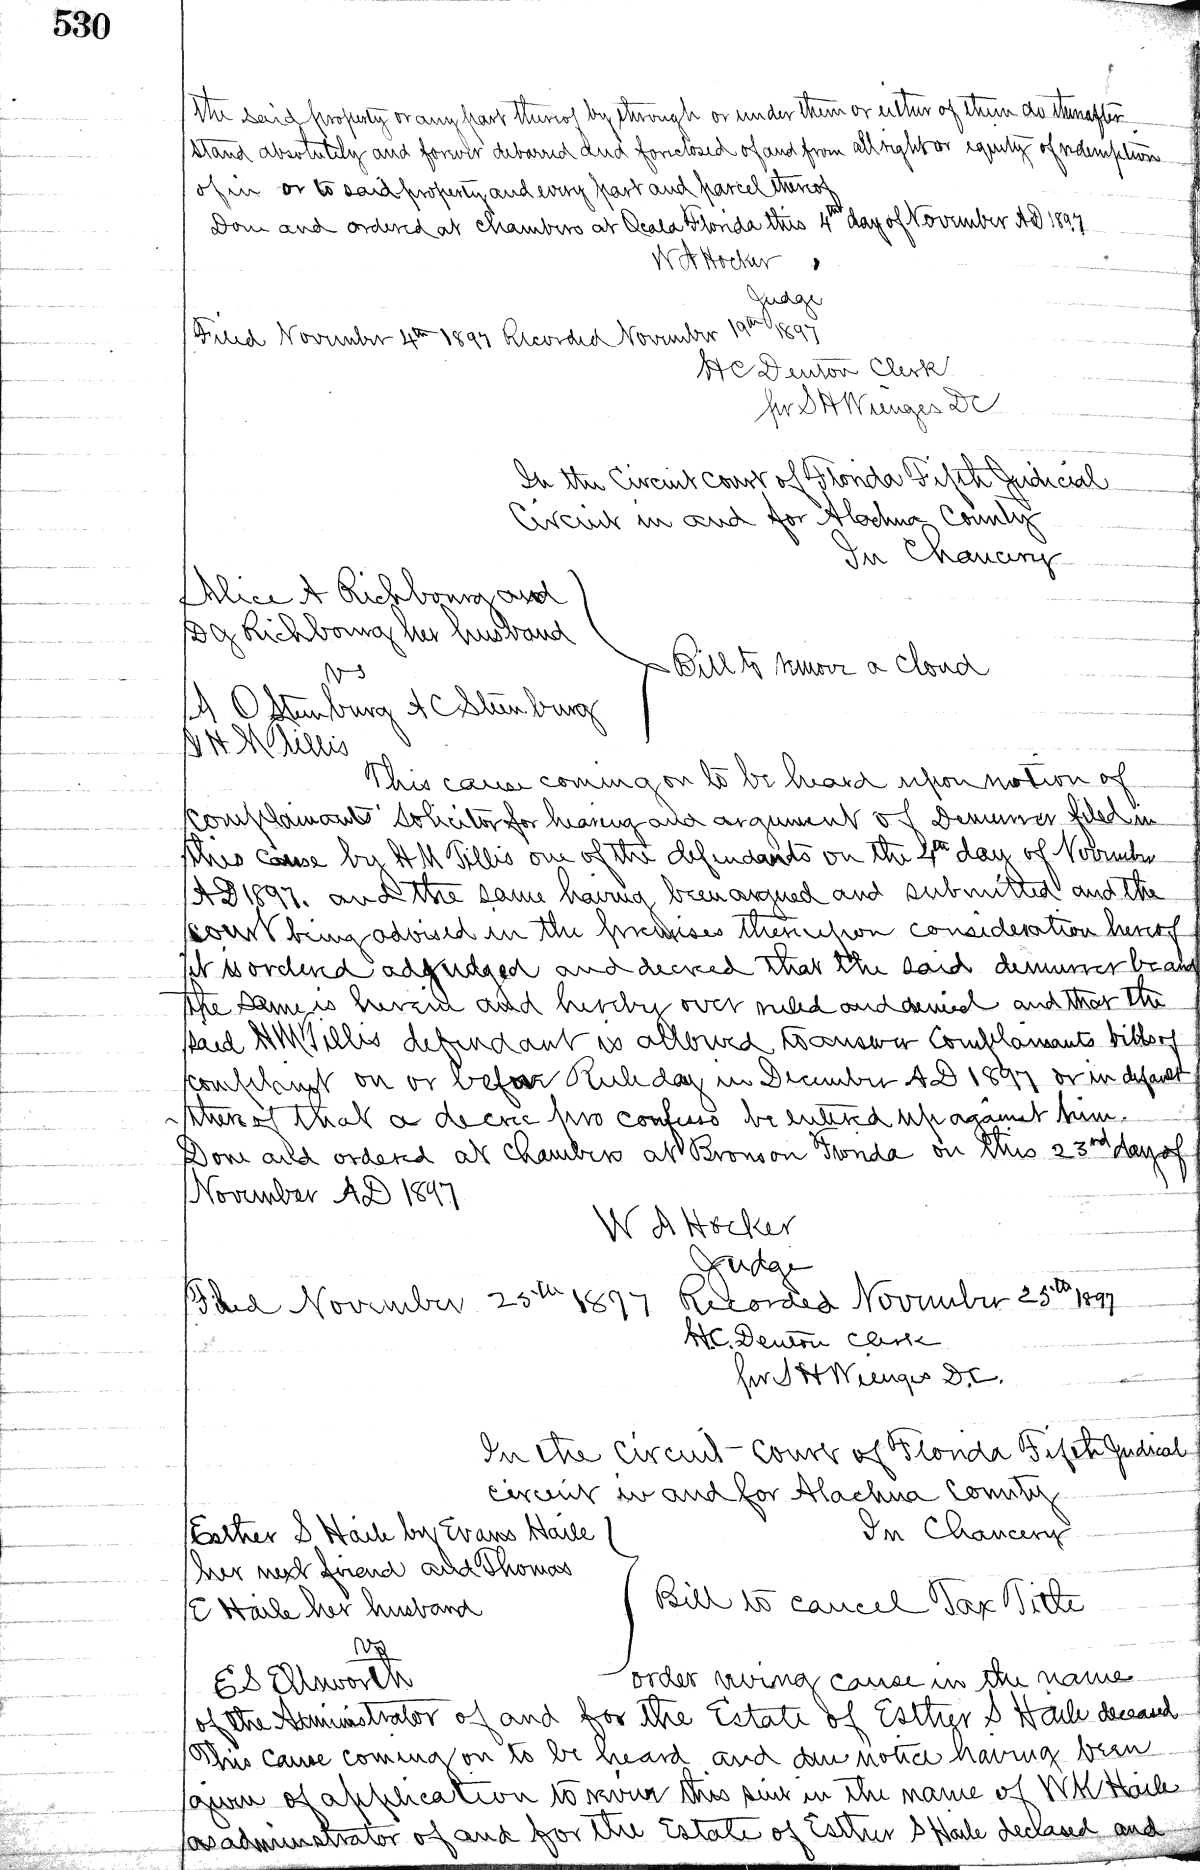 530
the said property or any part thereof by through or under them or either of them do thereafter
stand absolutely and forever debarred and foreclosed of and from all right or equity of redemption
of in or to said property and every part and parcel thereof
Done and ordered at Chambers at Ocala Florida this 4th day of November AD 1897
W A Hocker
Judge
Filed November 4th 1897 Recorded November 19th 1897
H C Denton Clerk
per S H Wienges DC
In the Circuit Court of Florida Fifth Judicial
Circuit in and for Alachua County
In Chancery
Alice A Richbourg and
D G Richbourg her husband
vs
A O Steenburg A C Steenburg
& H M Tillis
Bill to remove a cloud
This cause coming on to be heard upon motion of
complainants' solicitor for hearing and argument of Demurrer filed in
this cause by H M Tillis one of the defendants on the 4th day of November
AD 1897. and the same having been argued and submitted and the
court being advised in the premises thereupon consideration hereof
it is ordered adjudged and decreed that the said demurrer be and
the same is herein and hereby over ruled and denied and that the
said H M Tillis defendant is allowed to answer Complainants bill of
complaint on or before Rule day in December AD 1897 or in default
thereof that a decree pro confesso be entered up against him.
Done and ordered at Chambers at Bronson Florida on this 23rd day of
November AD 1897
W A Hocker
Judge
Filed November 25th 1897 Recorded November 25th 1897
H.C. Denton Clerk
per S H Wienges D.C.
In the Circuit Court of Florida Fifth Judical
circuit in and for Alachua County
In Chancery
Esther S Haile by Evans Haile
her next friend and Thomas
E Haile her husband
vs
E S Ellsworth
Bill to cancel Tax Title
order reviving cause in the name
of the Administrator of and for the Estate of Esther S Haile deceased
This cause coming on to be heard and due notice having been
given of application to revive this suit in the name of W K Haile
as administrator of and for the Estate of Esther S Haile declased and